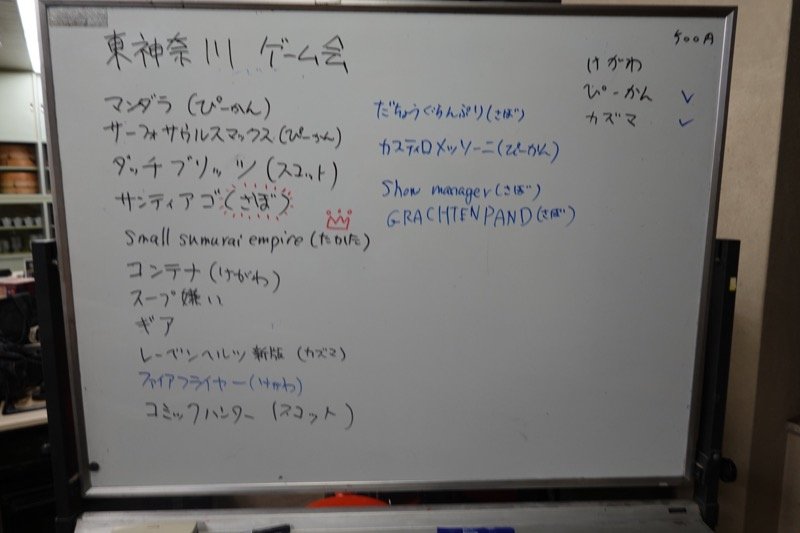 東神奈川 ゲーム会
マンダラ (ぴーかん)
サーフォサウルスマックス (ぴーかん)
ダッチブリッツ (スコット)
サンティアゴ (さぼ)
small sumurai empire (たかた)
コンテナ (けがわ)
スープ嫌い
ギア
レーベンヘルツ 新版 (カズマ)
ファイアフライヤー (けがわ)
コミックハンター (スコット)
だちょうぐらんぷり (さぼ)
カスティロメッソーニ (ぴーかん)
Show manager (さぼ)
GRACHTENPAND (さぼ)
500円
けがわ
ぴーかん ✓
カズマ ✓